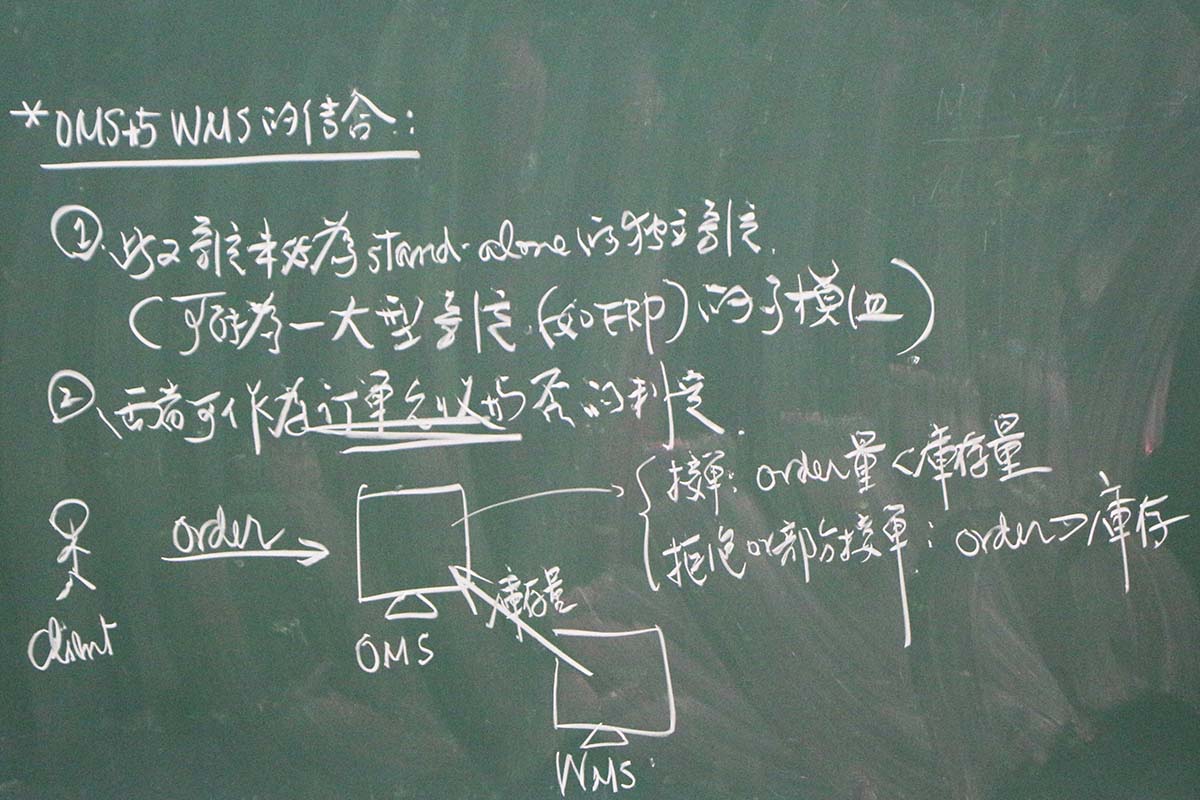 * OMS与WMS的结合:
① 此2系统未必为stand-alone的独立系统.
(可能为一大型系统(如ERP)的子模组).
② 两者可作为订单允收与否的判定.
接單: order量<庫存量
拒絕or部分接單: order>庫存
order
庫存量
client
OMS
WMS